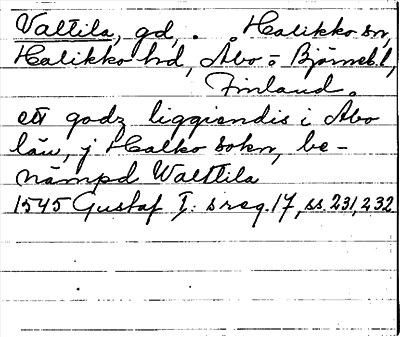 Valttila, gd, . Halikko sn,
Halikko hd, Åbo o Björneb. l,
Finland.
ett godz liggiendis i Abo
län, j Halko sokn, be-
nämpd Walttila
1545 Gustaf I: s reg. 17, ss. 231, 232